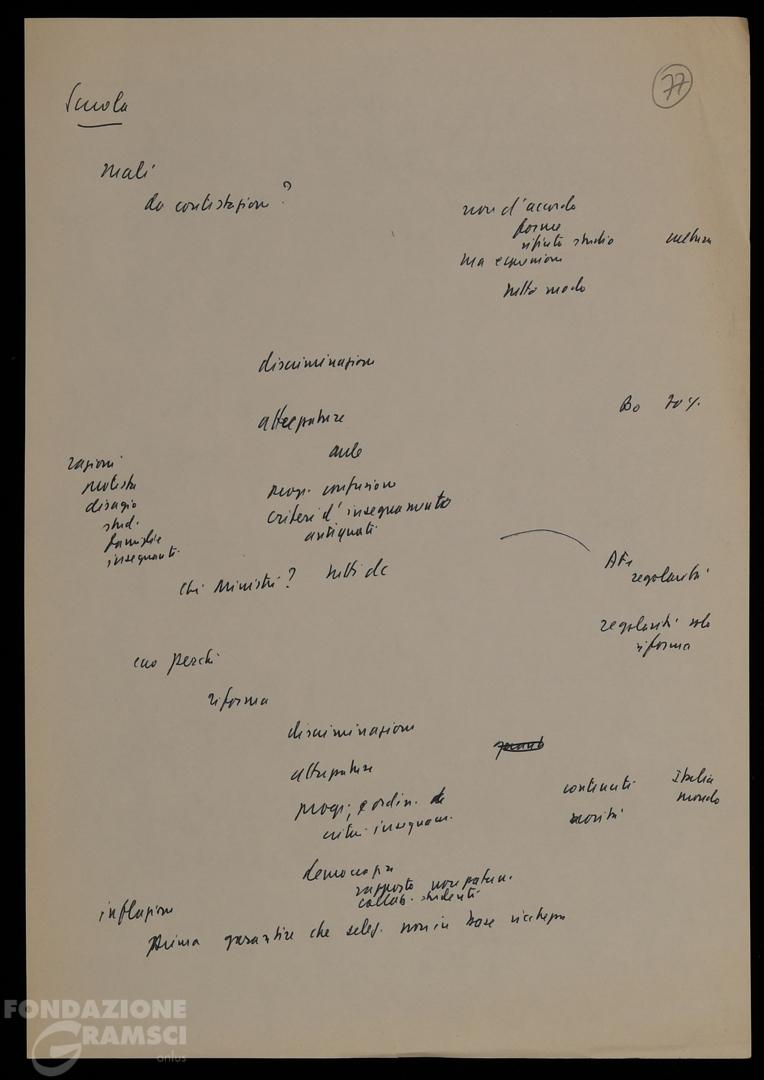 77
Scuola
mali
da contestazione?
non d'accordo
forme
rifiuto studio cultura
ma espressione
tutto modo
discriminazione
attrezzature
Bo 70%
aule
ragioni
protesta
progr. confusione
disagio
criteri d'insegnamento
stud.
antiquati
famiglie
insegnanti
chi Ministri? tutti dc
regolarità
regolarità solo
riforma
ecco perché
riforma
discriminazione
attrezzature
progr. e ordin.
criteri insegnam.
contenuti Italia
novità mondo
democrazia
rapporto non patern.
collab. studenti
inflazione
Prima garantire che selez. non in base ricchezza
FONDAZIONE
GRAMSCI
onlus